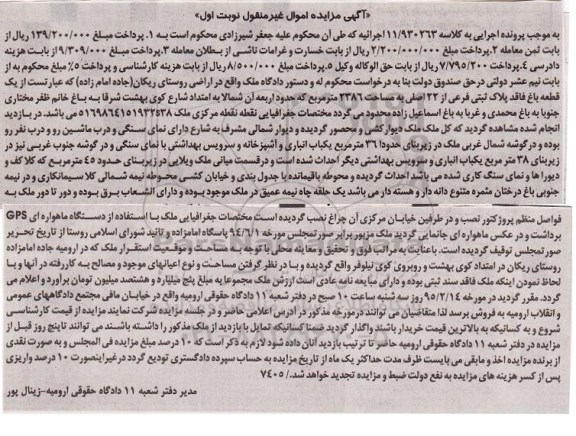 «آگهی مزایده اموال غیرمنقول نوبت اول»
به موجب پرونده اجرایی به کلاسه ۱۱/۹۳۰۲۶۳ اجرائیه که طی آن محکوم علیه جعفر شیرزادی محکوم است به ۱. پرداخت مبلغ ۱۳۹/۲۰۰/۰۰۰ ریال از
بابت ثمن معامله ۲. پرداخت مبلغ ۲/۲۰۰/۰۰۰/۰۰۰ ریال از بابت خسارت و غرامات ناشی از بطلان معامله ۳. پرداخت مبلغ ۹/۳۰۹/۰۰۰ از بابت هزینه
دادرسی ۴. پرداخت ۷/۷۹۵/۲۰۰ ریال از بابت حق الوکاله وکیل ۵. پرداخت مبلغ ۸/۵۰۰/۰۰۰ ریال از بابت هزینه کارشناسی و پرداخت ۵٪ مبلغ محکوم به از
بابت نیم عشر دولتی در حق صندوق دولت بنا به درخواست محکوم له و دستور دادگاه ملک واقع در اراضی روستای ریکان (جاده امام زاده) که عبارت است از یک
قطعه باغ فاقد پلاک ثبتی فرعی از ۲۳ اصلی به مساحت ۳۳۸۶ مترمربع که حدود اربعه آن شمالا به امتداد شارع کوی بهشت شرقا به باغ خانم ظفر مختاری
جنوبا به باغ محمدی و غربا به باغ اسماعیل زاده محدود می گردد مختصات جغرافیایی نقطه مرکزی ملک می باشد. در بازدید
انجام شده مشاهده گردید که کل ملک دیوارکشی و محصور گردیده و دیوار شمالی مشرف به شارع دارای نمای سنگی و درب ماشین رو و درب نفر رو
بوده و در گوشه شمال غربی ملک در زیربنای حدودا ۳۶ مترمربع یکباب انباری و آشپزخانه و سرویس بهداشتی با نمای سنگی و در گوشه جنوب غربی نیز در
زیربنای ۳۸ متر مربع یکباب انباری و سرویس بهداشتی دیگر احداث شده است و در قسمت میانی ملک ویلایی در زیربنای حدود ۴۵ مترمربع که کلا کف و
دیورا ها و نمای سنگ کاری شده می باشد احداث گردیده و محوطه باقیمانده با جدول بندی و خیابان کشی محوطه نیمه شمالی کلا سیمانکاری و در نیمه
جنوبی باغ درختان مثمره متنوع دانه دار و هسته دار می باشد یک حلقه چاه نیمه عمیق در ملک موجود بوده و دارای انشعاب برق بوده و دور تا دور ملک به
فواصل منظم پروژکتور نصب و در طرفین خیابان مرکزی آن چراغ نصب گردیده است مختصات جغرافیایی ملک با استفاده از دستگاه ماهواره ای GPS
برداشت و در عکس ماهواره ای جانمایی گردیده ملک مزبور برابر صورتمجلس مورخه ۹۴/۶/۱ پاسگاه امامزاده و تائید شورای اسلامی روستا از تاریخ تحریر
صورتمجلس توقیف گردیده است. باعنایت به مراتب فوق و تحقیق و معاینه محلی با توجه به مساحت و موقعیت استقرار ملک که در ارومیه جاده امامزاده
روستای ریکان در امتداد کوی بهشت و روبروی کوی نیلوفر واقع گردیده و با در نظر گرفتن مساحت و نوع اعیانهای موجود و مصالح به کاررفته در آنها و با
لحاظ نمودن اینکه ملک فاقد سند ثبتی بوده و دارای مبایعه نامه عادی است ارزش ملک مجموعا به مبلغ پنج میلیارد و هشتصد میلیون تومان برآورد و اعلام می
گردد. مقرر گردید در مورخه ۹۵/۲/۱۴ روز سه شنبه ساعت ۱۰ صبح در دفتر شعبه ۱۱ دادگاه حقوقی ارومیه واقع در خیابان مافی مجتمع دادگاههای عمومی
و انقلاب ارومیه به فروش برسد لذا متقاضیان می توانند درمورخه مذکور در آدرس اعلامی حاضر و در جلسه مزایده شرکت نمایند مزایده از قیمت کارشناسی
شروع و به کسانیکه به بالاترین قیمت خریدار باشند واگذار گردید ضمنا کسانیکه تمایل با بازدید از ملک مذکور را داشته باشند می توانند تا پنج روز قبل از
مزایده در دفتر شعبه ۱۱ دادگاه حقوقی ارومیه حاضر تا ترتیب بازدید آنان داده شود لازم به ذکر است که ۱۰ درصد مبلغ مزایده فی المجلس و به صورت نقدی
از برنده مزایده اخذ و مابقی می بایست ظرف مدت حداکثر یک ماه از تاریخ مزایده به حساب سپرده دادگستری تودیع گردد در غیر اینصورت ۱۰ درصد واریزی
پس از کسر هزینه های مزایده به نفع دولت ضبط و مزایده تجدید خواهد شد. / ۷۴۰۵
مدیر دفتر شعبه ۱۱ دادگاه حقوقی ارومیه - زینال پور